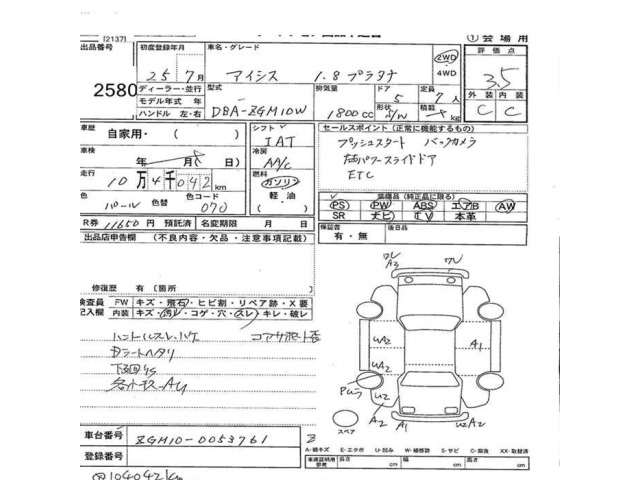 [2137]
① 会場用
出品番号
2580
初度登録年月
25年 7月
車名・グレード
アイシス 1.8プラタナ
2WD
4WD
評価点
3.5
外装 内装
C C
ディーラー・並行
モデル年式 年
ハンドル 左・右
型式
DBA-ZGM10W
排気量
1800cc
ドア
5
形状 S/W
定員
7人
積載
kg
車歴
自家用・( )
車検
年 月( 日)
走行
10万4千042km
色
パール
色替
色コード
070
シフト
IAT
冷房
AAC
燃料
ガソリン
軽油
( )
セールスポイント (正常に機能するもの)
プッシュスタート バックカメラ
両パワースライドドア
ETC
装備品 (純正品に限る)
PS PW ABS エアB AW
SR ナビ TV 本革
R券 11650円 預託済
名変期限 月 日
保証書
有・無
後日品
出品店申告欄 (不良内容・欠品・注意事項記載)
修復歴 有 (箇所
検査員
記入欄
FW キズ・飛石・ヒビ割・リペア跡・X要
内装 キズ・汚レ・コゲ・穴・スレ・キレ・破レ
ハンドルスレ・ハゲ
Dシートヘタリ
下回りS
車台番号
ZGM10-0053761
登録番号
104042km
A3
ワレ
UA2
UA2
A1
U2
A2
A1
UA2
A2
スペア
A-線キズ E-エクボ U-凹み W-補修跡 S-サビ C-腐食 XX-取替済
車庫証明用
参考
長さ cm
幅 cm
高さ cm